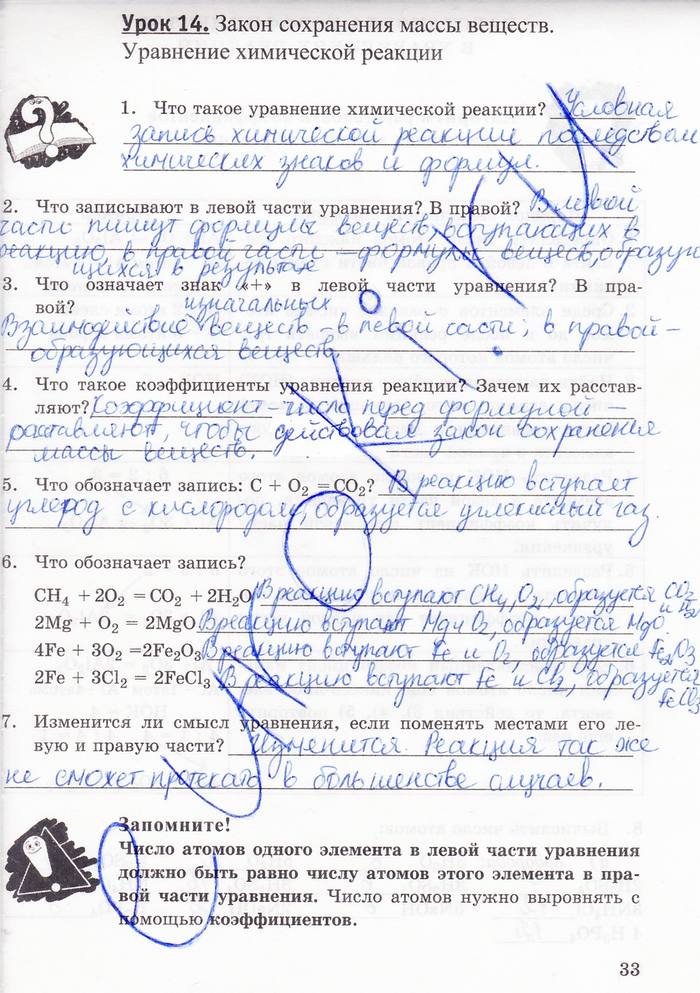 Урок 14. Закон сохранения массы веществ.
Уравнение химической реакции
1. Что такое уравнение химической реакции? Условная
запись химической реакции посредством
химических знаков и формул.
2. Что записывают в левой части уравнения? В правой? В левой
части пишут формулы веществ, вступающих в
реакцию, в правой части — формулы веществ, образую
щихся в результате
3. Что означает знак «+» в левой части уравнения? В пра-
вой? изначальных
Взаимодействие веществ - в левой части; в правой -
образующихся веществ.
4. Что такое коэффициенты уравнения реакции? Зачем их расстав-
ляют? Коэффициент - число перед формулой -
расставляют, чтобы действовал закон сохранения
массы веществ.
5. Что обозначает запись: C + O₂ = CO₂? В реакцию вступает
углерод с кислородом, образуется углекислый газ.
6. Что обозначает запись?
CH₄ + 2O₂ = CO₂ + 2H₂O В реакцию вступают CH₄, O₂, образуется CO₂
и H₂O
2Mg + O₂ = 2MgO В реакцию вступают Mg и O₂, образуется MgO
4Fe + 3O₂ = 2Fe₂O₃ В реакцию вступают Fe и O₂, образуется Fe₂O₃
2Fe + 3Cl₂ = 2FeCl₃ В реакцию вступают Fe и Cl₂, образуется
FeCl₃
7. Изменится ли смысл уравнения, если поменять местами его ле-
вую и правую части? Изменится. Реакция так же
не сможет протекать в большинстве случаев.
Запомните!
Число атомов одного элемента в левой части уравнения
должно быть равно числу атомов этого элемента в пра-
вой части уравнения. Число атомов нужно выровнять с
помощью коэффициентов.
33